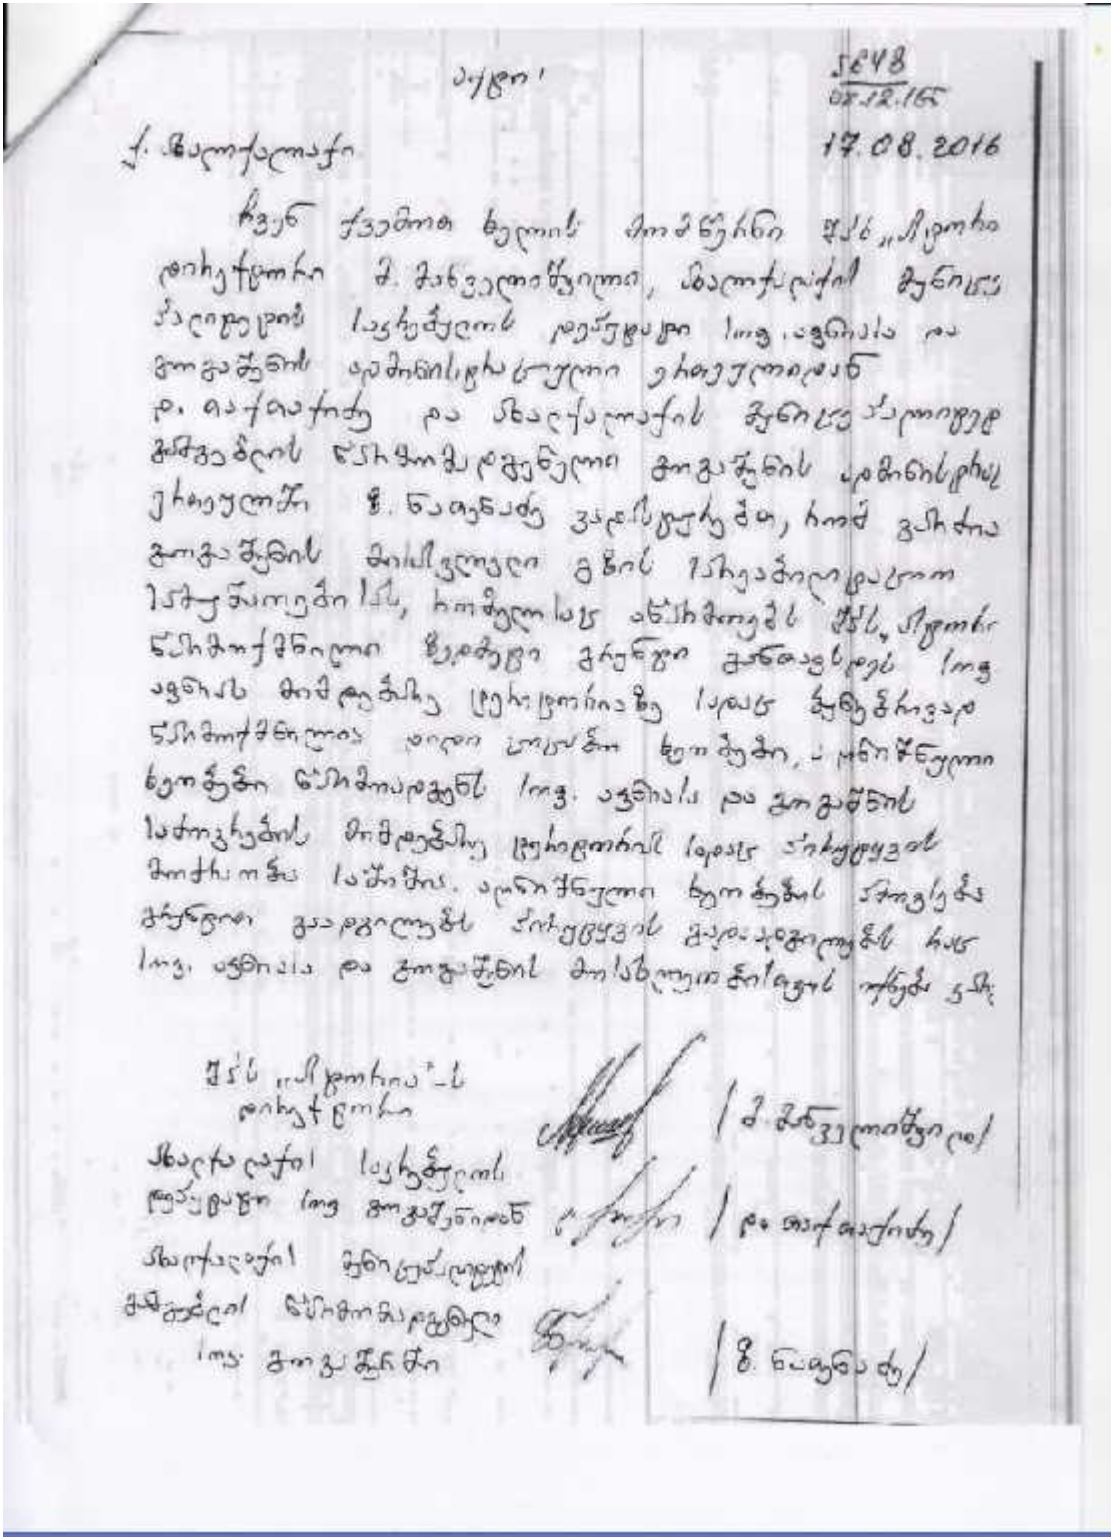 აქტი
08.12.16წ
ქ. ახალქალაქი
17.08.2016
ჩვენ ქვემოთ ხელის მომწერნი შპს „ასტორი
დირექტორი მ. მანველიშვილი, ახალქალაქის მუნიცი
პალიტეტის საკრებულოს დეპუტატი სოფ. აფნიასა და
გოგაშენის ადმინისტრაციული ერთეულიდან
დ. თაქთაქიძე და ახალქალაქის მუნიციპალიტეტ
გამგებლის წარმომადგენელი გოგაშენის ადმინისტრაც
ერთეულში ზ. ნათენაძე ვადასტურებთ, რომ
გოგაშენის მისასვლელი გზის სარეაბილიტაციო
სამუშაოებისას, რომელსაც აწარმოებს შპს „ასტორი
წარმოქმნილი ზედმეტი გრუნტი განთავსდეს სოფ
აფნიას მიმდებარე ტერიტორიაზე სადაც ბუნებრივად
წარმოქმნილია დიდი ხეობები, აღნიშნული
ხეობები წარმოადგენს სოფ. აფნიასა და გოგაშენის
საძოვრების მიმდებარე ტერიტორიას სადაც პირუტყვის
მოძრაობა საშიშია. აღნიშნული ხეობების ამოვსება
გრუნტით გაადვილებს პირუტყვის გადაადგილებას რაც
სოფ. აფნიასა და გოგაშენის მოსახლეობისთვის იქნება კარ
შპს „ასტორია"-ს
დირექტორი
/მ. მანველიშვილი/
ახალქალაქის საკრებულოს
დეპუტატი სოფ გოგაშენიდან /დ. თაქთაქიძე/
ახალქალაქის მუნიციპალიტეტის
გამგებლის წარმომადგენელი
სოფ. გოგაშენში /ზ. ნათენაძე/